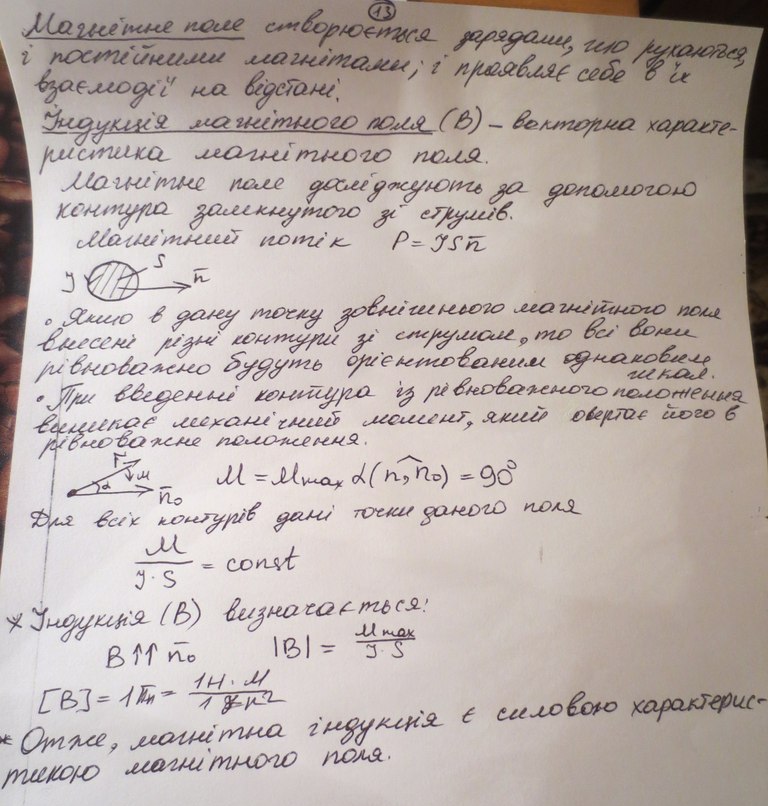 13
Магнітне поле створюється зарядами, що рухаються,
і постійними магнітами; і проявляє себе в їх
взаємодії на відстані.
Індукція магнітного поля (B) – векторна характе-
ристика магнітного поля.
Магнітне поле досліджують за допомогою
контура замкнутого зі струмів.
Магнітний потік P = JSn̄
J S n̄
• Якщо в дану точку зовнішнього магнітного поля
внесені різні контури зі струмом, то всі вони
рівноважно будуть орієнтованим однаковим
чином.
• При введенні контура із рівноважного положення
виникає механічний момент, який обертає його в
рівноважне положення.
α M n̄₀ M = Mmax α(n̄,^n̄₀) = 90°
Для всіх контурів дані точки даного поля
M
J·S = const
* Індукція (B) визначається:
B↑↑ n̄₀ |B| = Mmax / J·S
[B] = 1Тл = 1Н·М
* Отже, магнітна індукція є силовою характерис-
тикою магнітного поля.